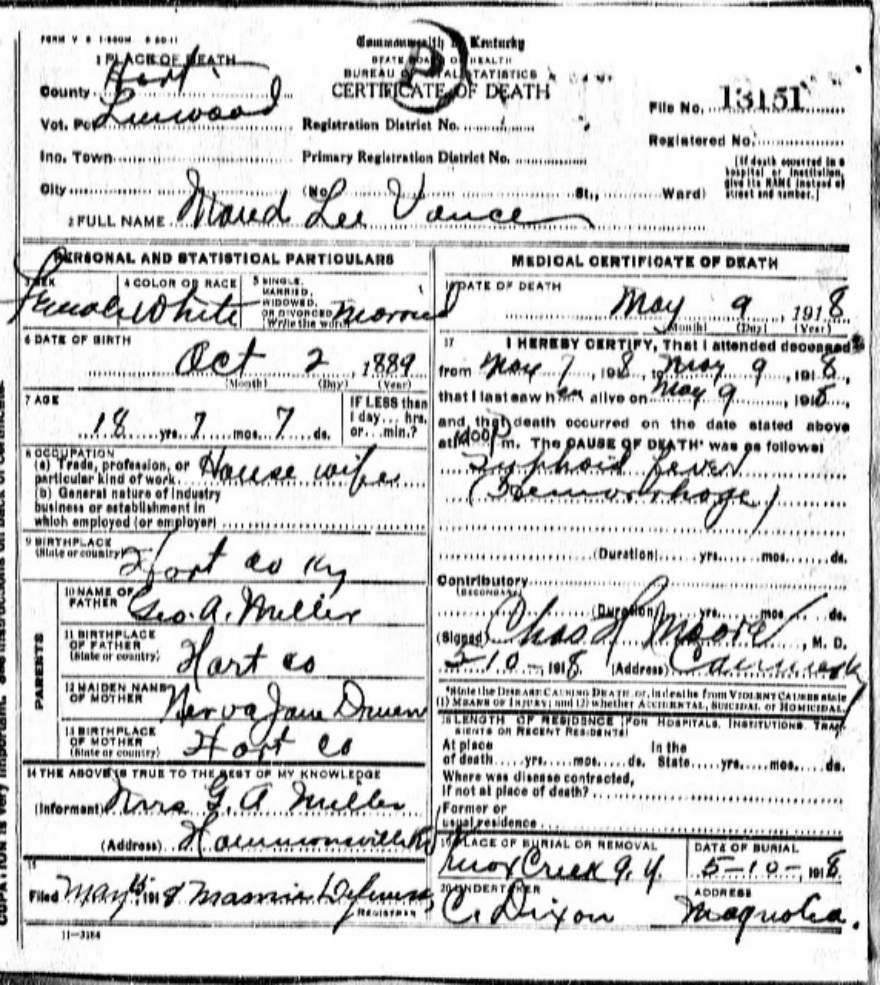 FORM V S 1-500M 6-50-11
Commonwealth of Kentucky
STATE BOARD OF HEALTH
BUREAU OF VITAL STATISTICS
CERTIFICATE OF DEATH
1 PLACE OF DEATH
County Hart
Vot. Pct Linwood
Registration District No.
File No. 13151
Registered No.
Inc. Town
Primary Registration District No.
[If death occurred in a hospital or institution, give its NAME instead of street and number.]
City (No. St., Ward)
2 FULL NAME Maud Lee Vance
PERSONAL AND STATISTICAL PARTICULARS
3 SEX Female
4 COLOR OR RACE White
5 SINGLE, MARRIED, WIDOWED, OR DIVORCED (Write the word) Married
6 DATE OF BIRTH
Oct 2, 1889
(Month) (Day) (Year)
7 AGE
18 yrs. 7 mos. 7 ds.
IF LESS than 1 day... hrs. or... min.?
8 OCCUPATION
(a) Trade, profession, or particular kind of work House wife
(b) General nature of industry business or establishment in which employed (or employer)
9 BIRTHPLACE
(State or country) Hart Co Ky
PARENTS
10 NAME OF FATHER Geo. A. Miller
11 BIRTHPLACE OF FATHER (State or country) Hart Co
12 MAIDEN NAME OF MOTHER Nerva Jane Druen
13 BIRTHPLACE OF MOTHER (State or country) Hart Co
14 THE ABOVE IS TRUE TO THE BEST OF MY KNOWLEDGE
(Informant) Mrs G. A Miller
(Address) Hammonsville Ky
15
Filed May 15 1918 Mamie REGISTRAR
11-3184
MEDICAL CERTIFICATE OF DEATH
16 DATE OF DEATH
May 9, 1918
(Month) (Day) (Year)
17 I HEREBY CERTIFY, That I attended deceased
from May 7, 1918, to May 9, 1918,
that I last saw her alive on May 9, 1918,
and that death occurred on the date stated above
at m. The CAUSE OF DEATH* was as follows:
Typhoid fever
(Hemorrhage)
(Duration) yrs. mos. ds.
Contributory
(SECONDARY)
(Duration) yrs. mos. ds.
(Signed) Chas H Moore, M. D.
5-10-1918 (Address) Canmer Ky
*State the DISEASE CAUSING DEATH, or, in deaths from VIOLENT CAUSES state
(1) MEANS OF INJURY; and (2) whether ACCIDENTAL, SUICIDAL or HOMICIDAL.
18 LENGTH OF RESIDENCE (FOR HOSPITALS, INSTITUTIONS, TRANSIENTS OR RECENT RESIDENTS)
At place of death yrs. mos. ds. In the State yrs. mos. ds.
Where was disease contracted,
If not at place of death?
Former or usual residence
19 PLACE OF BURIAL OR REMOVAL
Knox Creek G. Y.
DATE OF BURIAL
5-10-, 1918
20 UNDERTAKER
C. Dixon
ADDRESS
Magnolia.